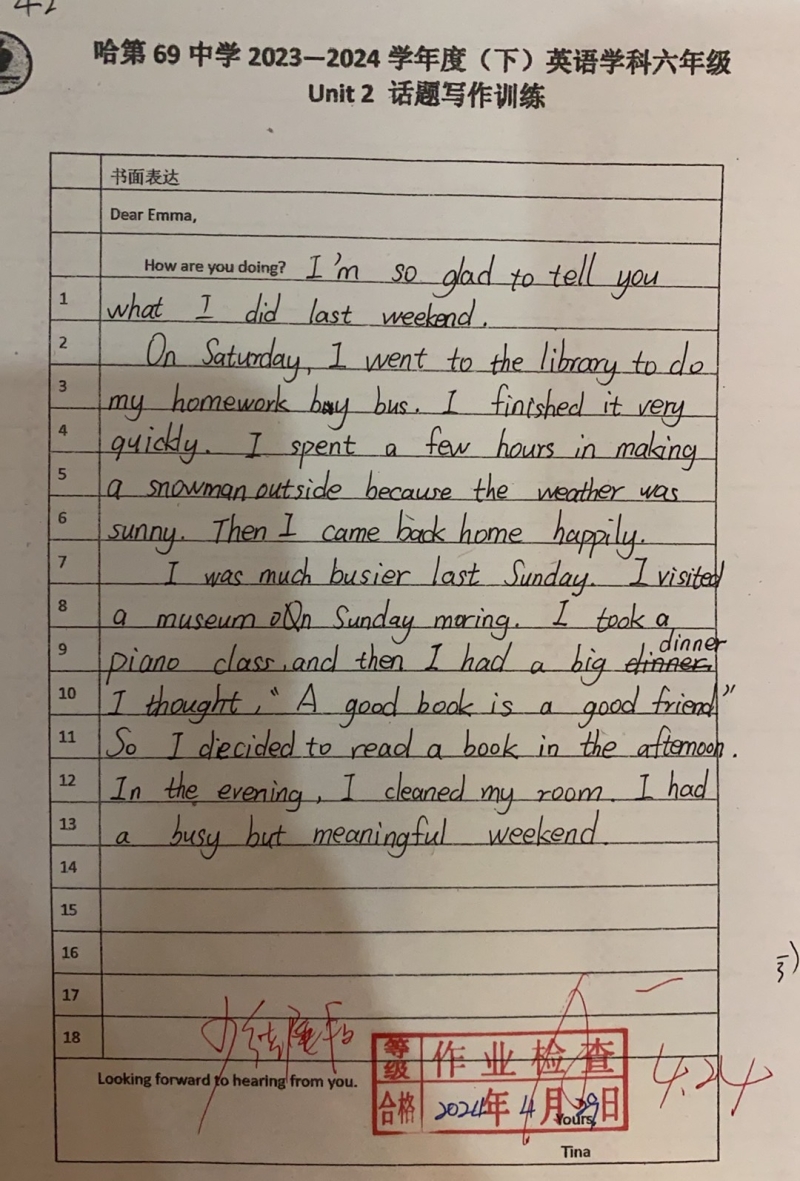 42
哈第 69 中学 2023—2024 学年度（下）英语学科六年级
Unit 2 话题写作训练
书面表达
Dear Emma,
How are you doing? I'm so glad to tell you
1 what I did last weekend.
2 On Saturday, I went to the library to do
3 my homework by bus. I finished it very
4 quickly. I spent a few hours in making
5 a snowman outside because the weather was
6 sunny. Then I came back home happily.
7 I was much busier last Sunday. I visited
8 a museum On Sunday moring. I took a
dinner
9 piano class, and then I had a big dinner.
10 I thought, “A good book is a good friend”
11 So I decided to read a book in the afternoon.
12 In the evening, I cleaned my room. I had
13 a busy but meaningful weekend.
14
15
16
17
18
Looking forward to hearing from you.
等级 作业检查
合格 2024年4月29日
4.24
Yours,
Tina